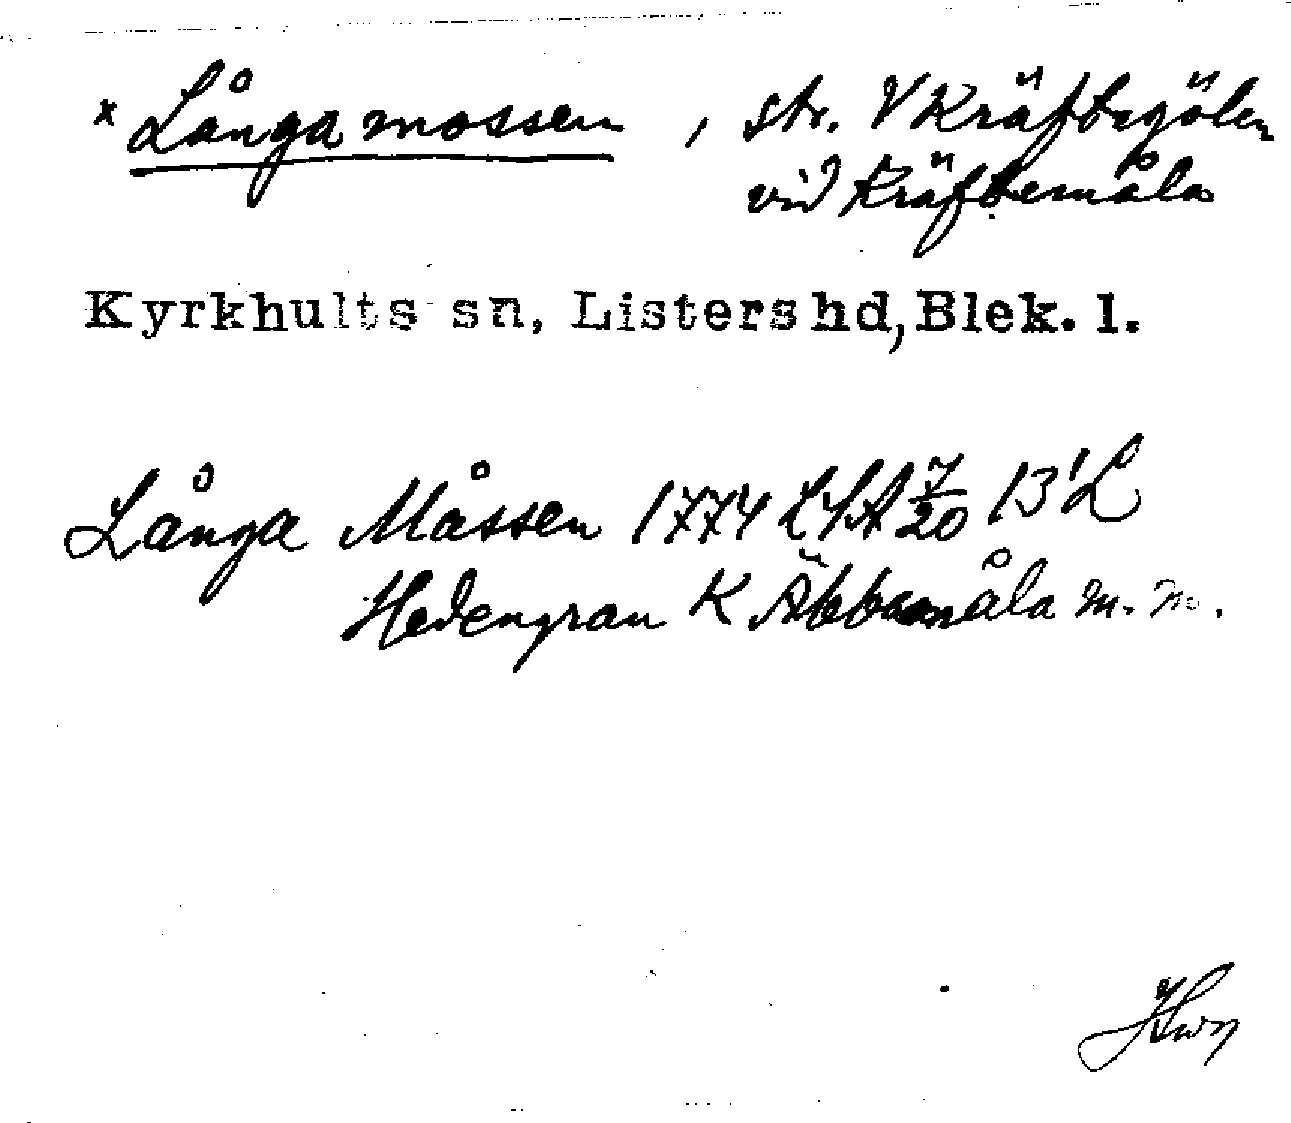 * Långa mossen, str. V Kräftegölen
vid Kräftemåla
Kyrkhults sn, Listers hd, Blek. l.
Långa Måssen 1774 LSA 7/20 13'L
Hedengran K Äbbamåla m. m.